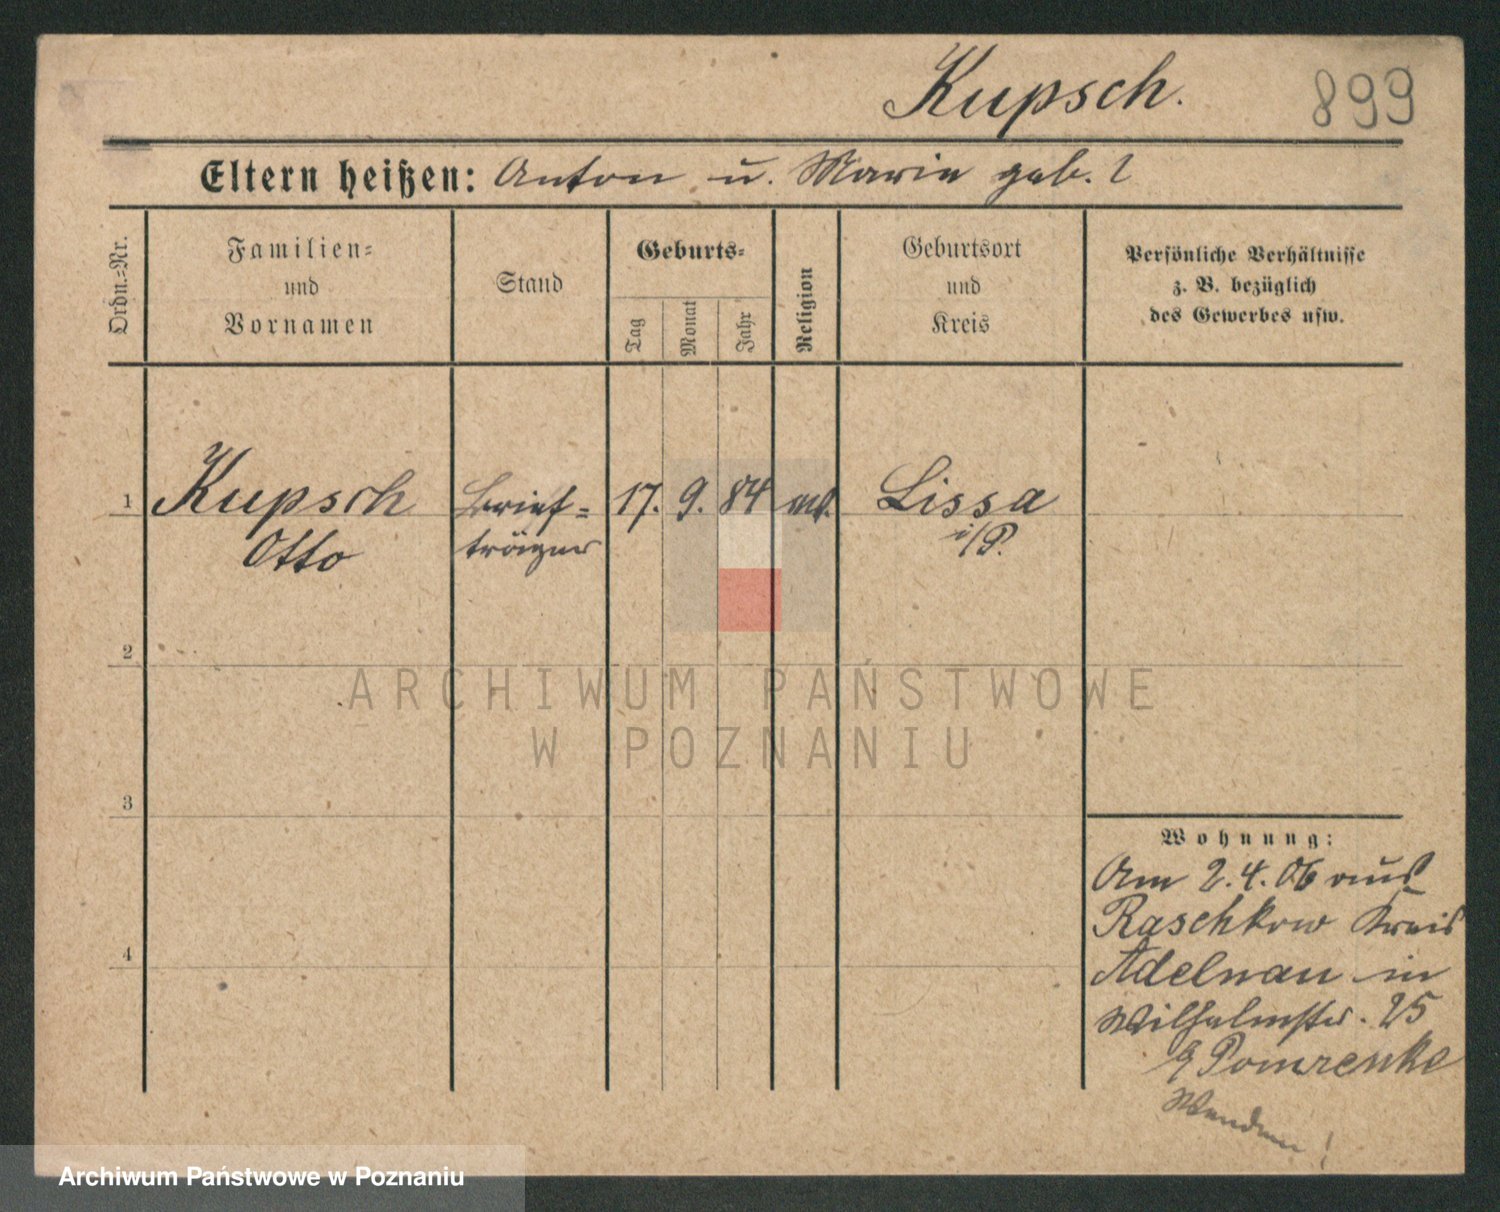 Kupsch.
899
Eltern heißen: Anton u. Maria geb. ?
Ordn.=Nr.
Familien=
und
Vornamen
Stand
Geburts=
Tag
Monat
Jahr
Religion
Geburtsort
und
Kreis
Persönliche Verhältnisse
z. B. bezüglich
des Gewerbes usw.
1 Kupsch Brief= 17. 9. 84 Lissa
Otto träger i/P.
2
ARCHIWUM PAŃSTWOWE
W POZNANIU
3
Wohnung:
Am 2.4.06 aus
Raschkow Kreis
4
Adelnau in
Wilhelmstr. 25
Pomrenke
Wenden!
Archiwum Państwowe w Poznaniu